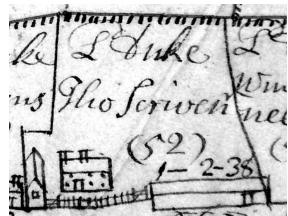 ke L Duke L
ns Tho Scriven
(52)
1-2-38